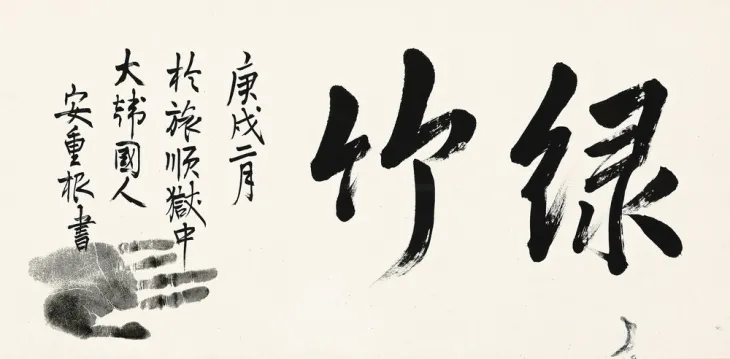 绿竹
庚戌二月
於旅順獄中
大韩國人
安重根書